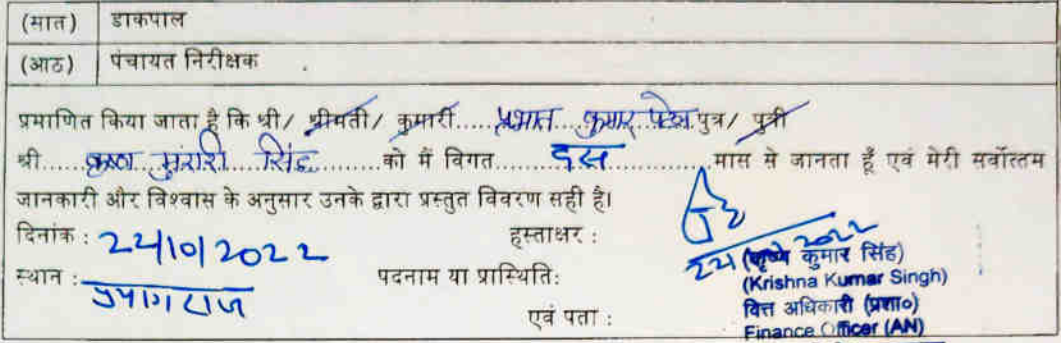 (सात) डाकपाल
(आठ) पंचायत निरीक्षक
प्रमाणित किया जाता है कि श्री/ श्रीमती/ कुमारी..... प्रभात कुमार पटेल पुत्र/ पुत्री
श्री..... कृष्ण मुरारी सिंह .........को मैं विगत..... दस ..............मास से जानता हूँ एवं मेरी सर्वोत्तम
जानकारी और विश्वास के अनुसार उनके द्वारा प्रस्तुत विवरण सही है।
दिनांक : 22/10/2022 हस्ताक्षर :
(कृष्ण कुमार सिंह)
स्थान : प्रयागराज पदनाम या प्रास्थिति: (Krishna Kumar Singh)
वित्त अधिकारी (प्रशा०)
एवं पता : Finance Officer (AN)